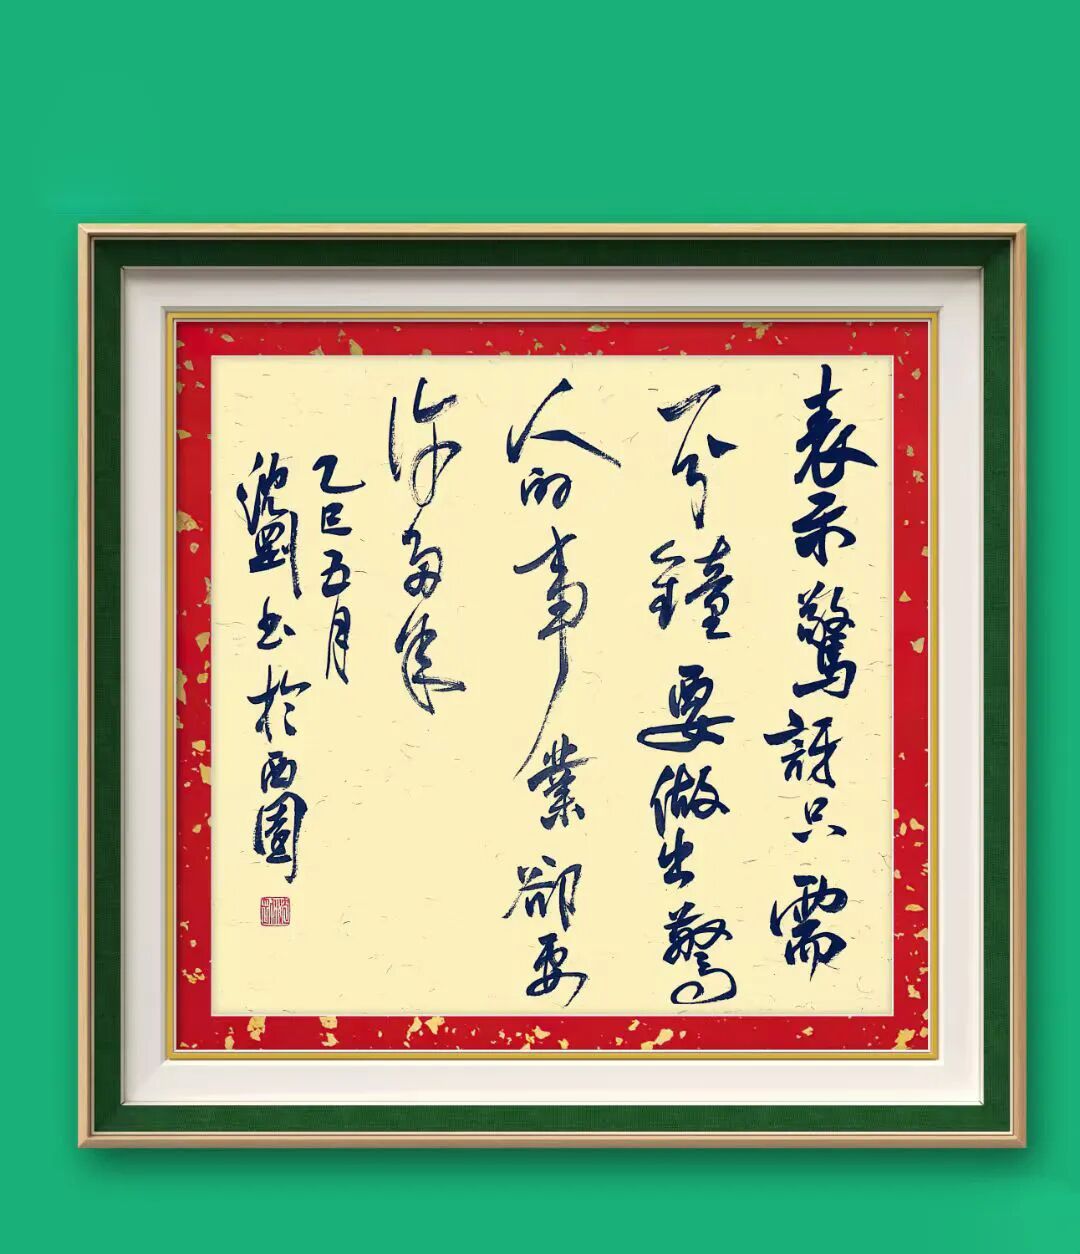 表示驚訝只需
一分鐘要做出驚
人的事業卻要
許多年
乙巳五月
劉書於西園